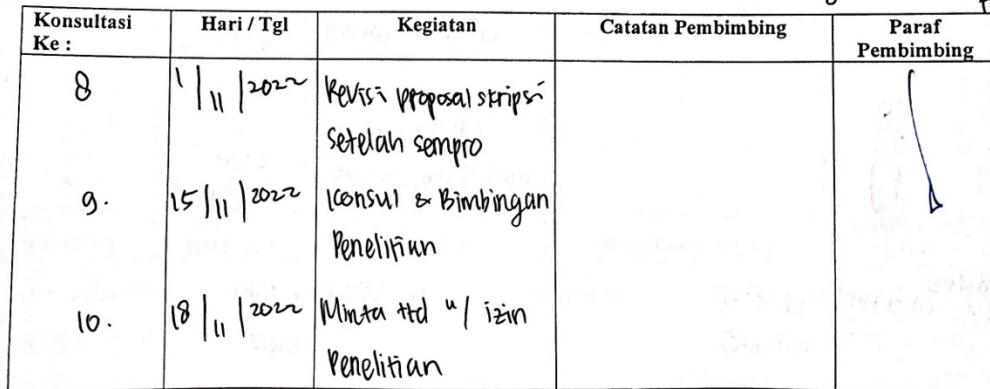 Konsultasi Ke : Hari / Tgl Kegiatan Catatan Pembimbing Paraf Pembimbing
8 1/11/2022 Revisi proposal skripsi
setelah sempro
9. 15/11/2022 Konsul & Bimbingan
Penelitian
10. 18/11/2022 Minta ttd u/ izin
Penelitian